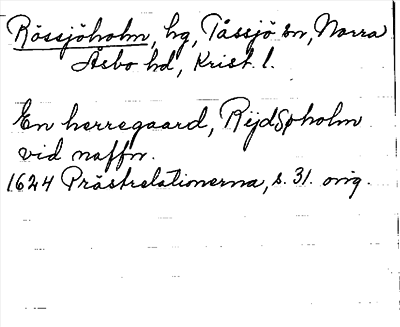 Rössjöholm, hg, Tåssjö sn, Norra
Åsbo hd, Krist. l.
En herregaard, Rijdsøholm
vid naffn.
1624 Prästrelationerna, s. 31. orig.